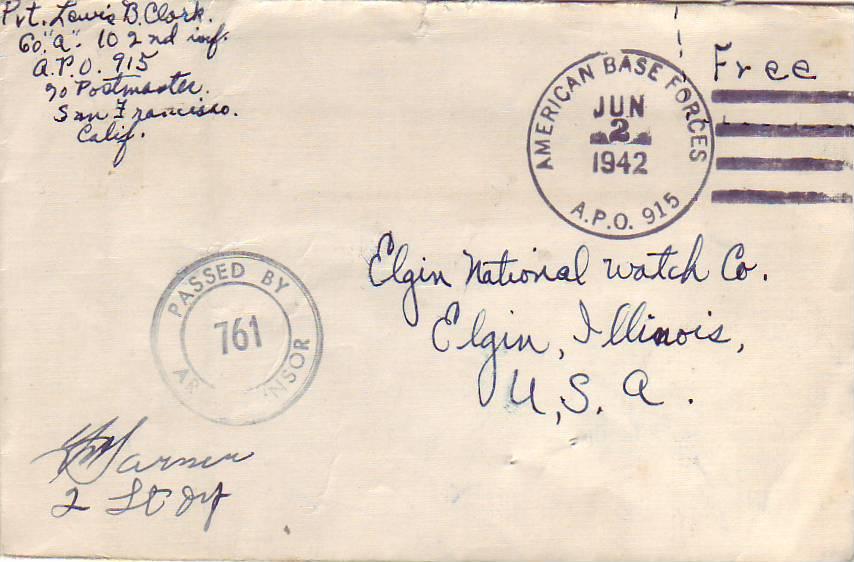 Pvt. Lewis B. Clark.
Co. "A". 102nd inf.
A.P.O. 915
℅ Postmaster.
San Francisco.
Calif.
Free
AMERICAN BASE FORCES
JUN
2
1942
A.P.O. 915
Elgin National Watch Co.
Elgin, Illinois,
U.S.A.
PASSED BY
761
AR NSOR
Garner
2 Lt Inf